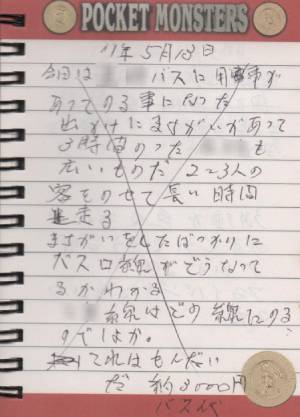 POCKET MONSTERS
11年5月18日
今日は バスに用事が
あってのる事になった
出かけにまちがいがあって
3時間のった も
広いものだ 2~3人の
客をのせて長い時間
走る
まちがいをしたばっかりに
バス口線がどうなって
るかわかる
線はどの線にのる
のでしょか。
てれはもんだい
だ 約3000円
バス代